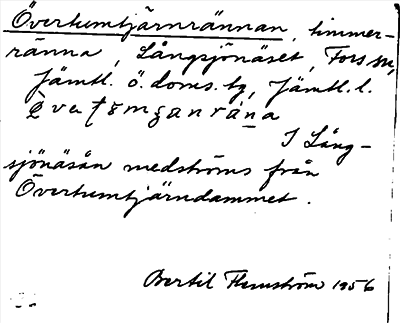 Övertumtjärnrännan, timmer-
ränna, Långsjönäset, Fors sn,
Jämtl. ö. doms. tg, Jämtl. l.
I Lång-
sjönäsån medströms från
Övertumtjärndammet.
Bertil Flemström 1956